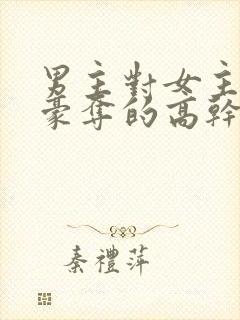 男主對女主
豪奪的高幹
秦禮萍